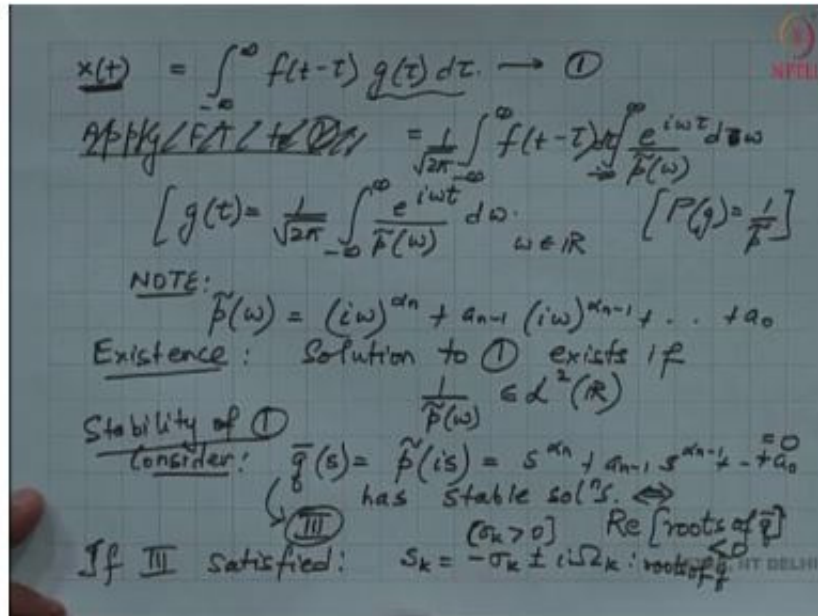 x(t) = ∫_{-∞}^{∞} f(t-τ) g(τ) dτ. → ①
NPTEL
= 1/√2π ∫_{-∞}^{∞} f(t-τ) dτ ∫_{-∞}^{∞} e^{iωτ}/p̃(ω) dω
[g(τ) = 1/√2π ∫_{-∞}^{∞} e^{iωt}/p̃(ω) dω. ω ∈ ℝ [P(g) = 1/p̃]
NOTE:
p̃(ω) = (iω)^{αn} + a_{n-1} (iω)^{α_{n-1}} + . . + a_0
Existence: Solution to ① exists if
1/p̃(ω) ∈ L²(ℝ)
Stability of ①
Consider: q̄(s) = p̃(is) = s^{αn} + a_{n-1} s^{α_{n-1}} + - + a_0 = 0
has stable solⁿs. ⇔
III (σ_k > 0] Re [roots of q̄] < 0
If III satisfied: s_k = -σ_k ± iΩ_k : roots of q̄
IIT DELHI